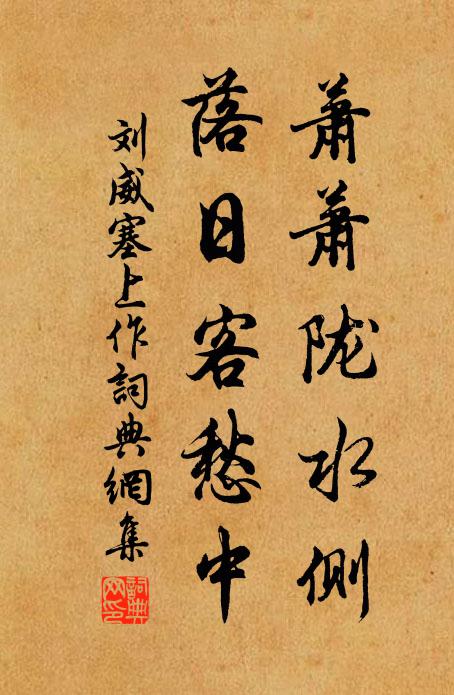 萧萧陇水侧
落日客愁中
刘威塞上作詞典網集
詞典网印